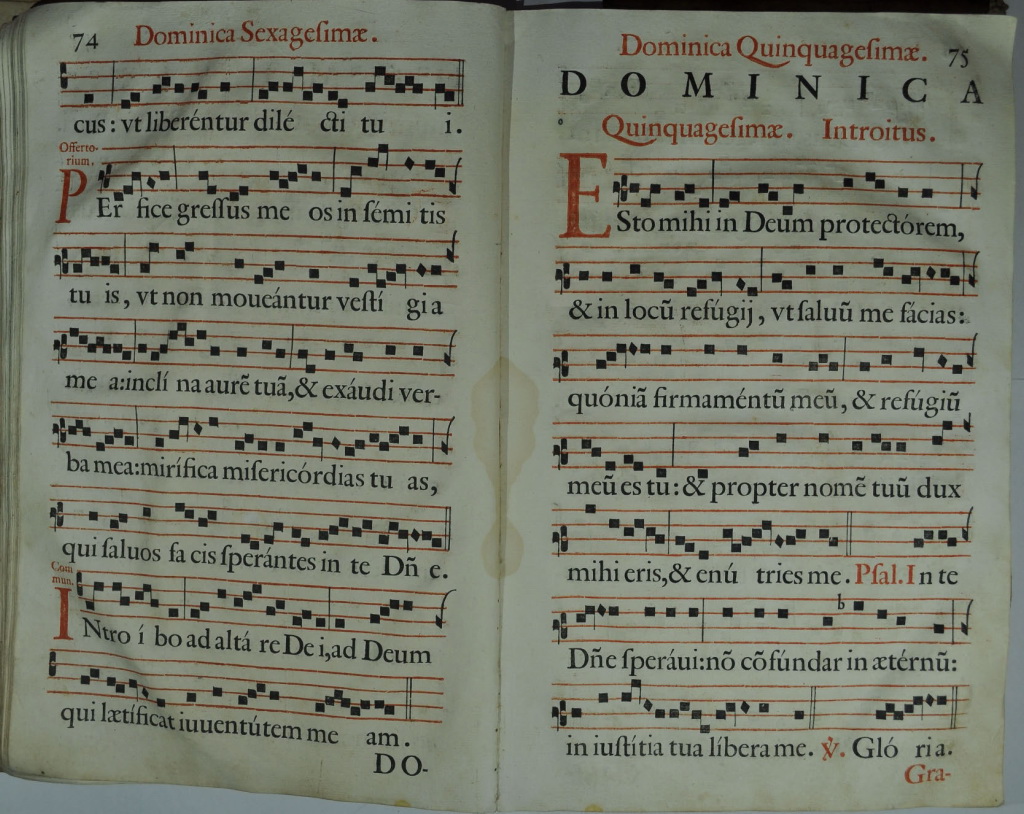 74 Dominica Sexagesimæ.
cus: vt liberéntur dilé cti tu i.
Offerto-
rium.
PEr fice gressus me os in sémi tis
tu is, vt non moueántur vestí gia
me a:inclí na aurẽ tuã,& exáudi ver-
ba mea:mirífica misericórdias tu as,
qui saluos fa cis sperántes in te Dñ e.
Com
mun.
INtro í bo ad altá re De i,ad Deum
qui lætíficat iuuentútem me am.
DO-
Dominica Quinquagesimæ. 75
DOMINICA
Quinquagesimæ. Introitus.
ESto mihi in Deum protectórem,
& in locũ refúgij, vt saluũ me fácias:
quóniã firmaméntũ meũ, & refúgiũ
meũ es tu:& propter nomẽ tuũ dux
mihi eris,& enú tries me. Psal. In te
b
Dñe speráui:nõ cõfúndar in ætérnũ:
in iustítia tua líbera me. ℣. Gló ria.
Gra-